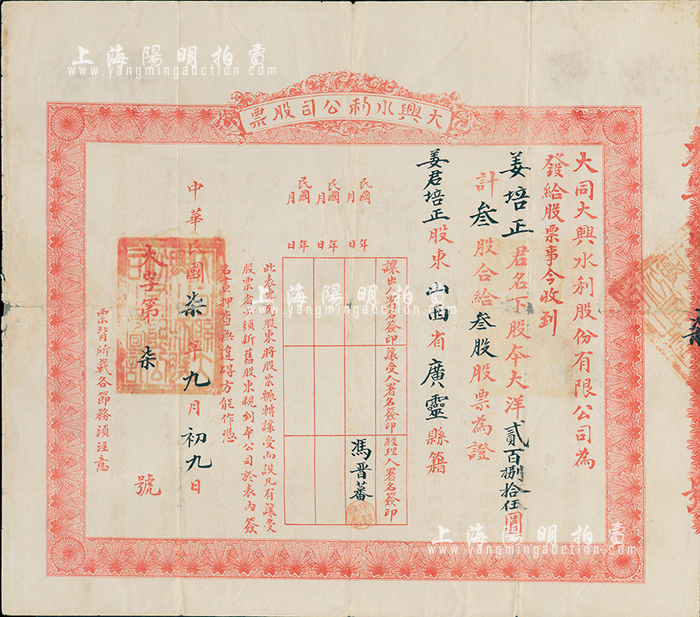 上海陽明拍賣
www.yangmingauction.com
大興水利公司股票
大同大興水利股份有限公司為
發給股票事今收到
姜培正君名下股夲大洋貳百捌拾伍圓
計叁股合給叁股股票為證
姜君培正股東山西省廣靈縣籍
讓出人署名簽印 讓受人署名簽印 經理人署名簽印
民國 年 月 日
民國 年 月 日
民國 年 月 日
馮晋蕃
此表專為股東將股票輾轉讓受而設凡有讓受
股票者必須新舊股東親到本公司於表內簽
名蓋押並無違碍方能作憑
中華民國柒年九月初九日
大字第柒號
票背所載各節務須注意
上海陽明拍賣
www.yangmingauction.com
上海陽明拍賣
www.yangmingauction.com